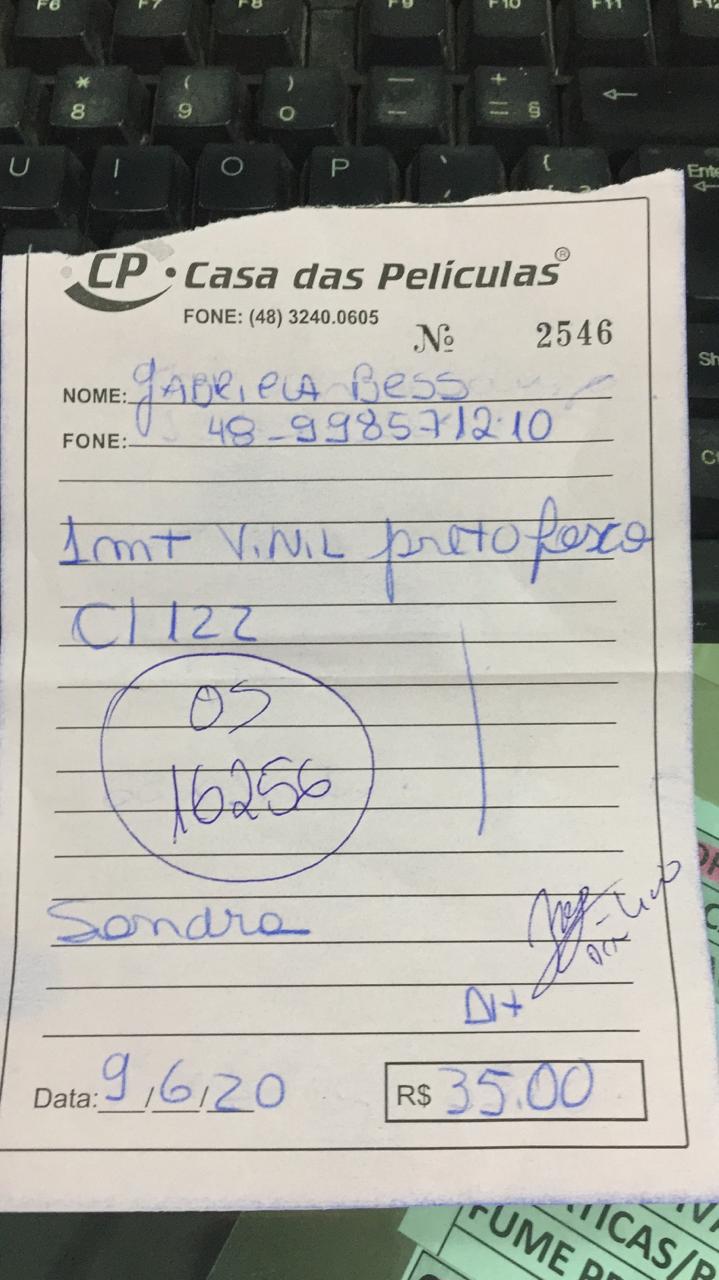 F6 F7 F8 F9 F10 F11 F12
* 8 ( 9 ) 0 — – + = §
U I O P ` {
Ente
Sh
CP • Casa das Películas®
FONE: (48) 3240.0605
Nº 2546
NOME: GABRIELA BESS
FONE: 48-998571210
1mt VINIL preto fosco
C/ 122
OS
16256
Sandra
Data: 9/6/20
R$ 35.00
FUME